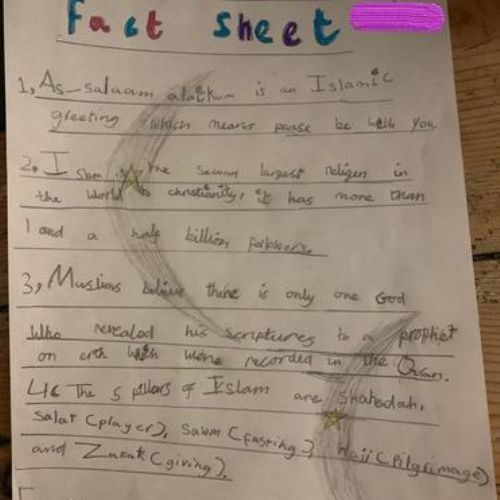 Fact Sheet
1, As-salaam alaikum is an Islamic
greeting which means pease be with you
2, Islam is the second largest religen in
the world to christianity, it has more than
1 and a half billion followers.
3, Muslims believe there is only one God
Who revealed his scriptures to a prophet
on erth which were recorded in the Quran.
4, The 5 pillars of Islam are Shahadah,
Salat (player), Sawm (fasting), Hajj (pilgrimage)
and Zakat (giving).